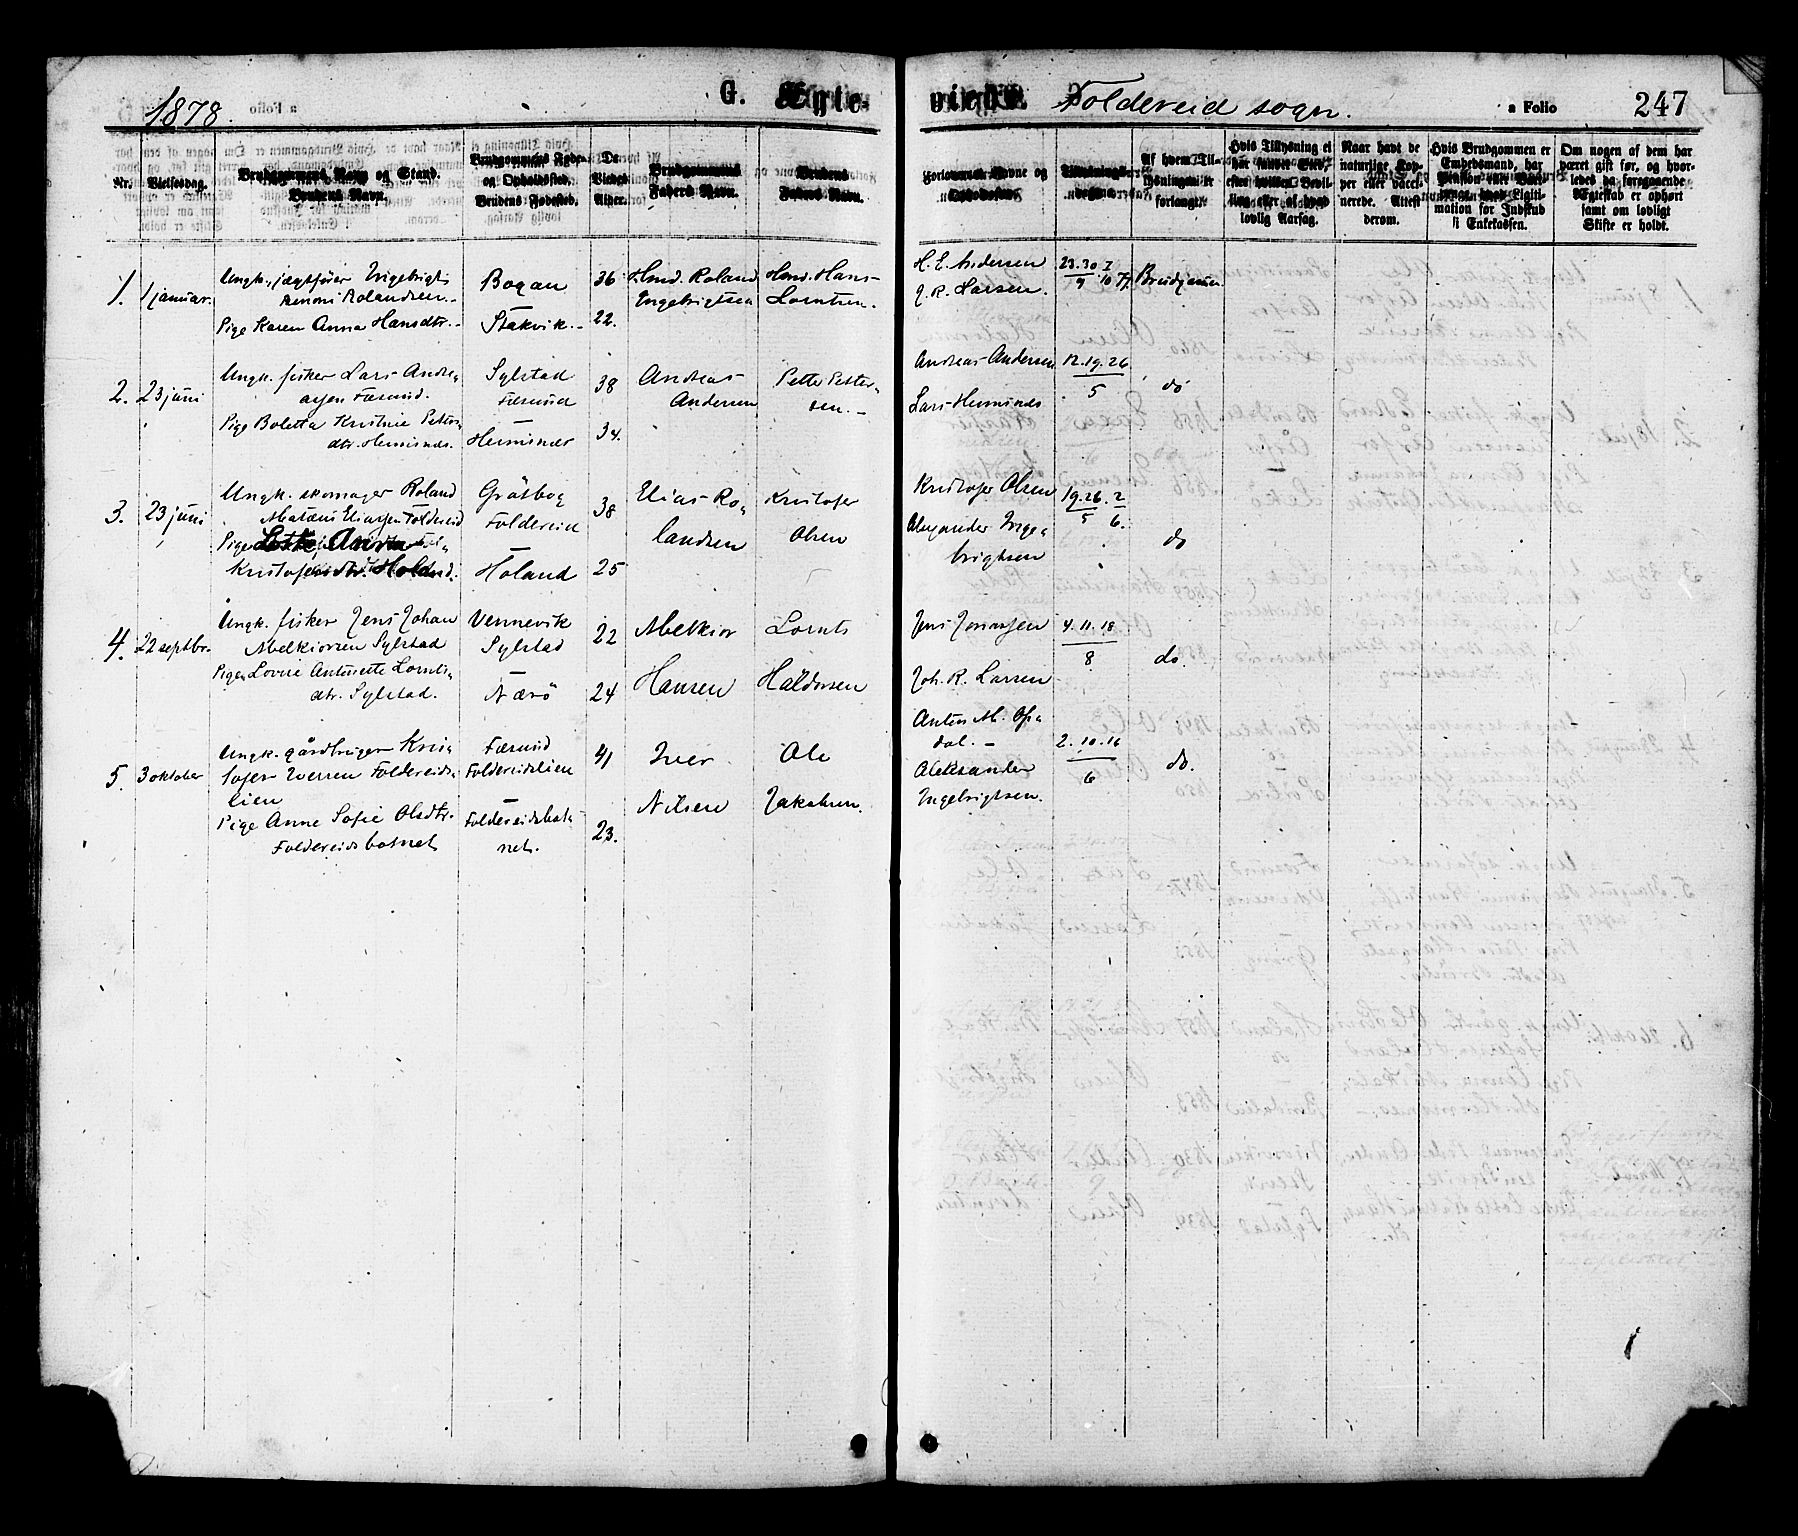 1878.
a Folio
G. Ægte-
viede.
Foldereid sogn.
a Folio 247
Nr.
Vielsesdag.
Brudgommens Navn og Stand.
Brudens Navn.
Brudgommens Føde-
og Opholdssted.
Brudens Fødested.
De
Viedes
Alder.
Brudgommens
Faders Navn.
Brudens
Faders Navn.
Forlovernes Navne og
Opholdssted.
Tillysnings-
dagene.
Af hvem Til-
lysningen er
forlangt.
Hvis Tillysning ei
har fundet Sted,
efter hvilken Bevil-
ling eller af hvad
lovlig Aarsag.
Naar havt de
naturlige Kop-
per eller vacci-
nerede. Attest
derom.
Hvis Brudgommen er
Embedsmand, har
Pension eller Vart-
penge, hvad Legiti-
mation for Indskud
i Enkekassen.
Om nogen af dem har
været gift før, og hvor-
ledes da foregaaende
Ægteskab er ophørt
samt om lovligt
Skifte er holdt.
1.
1 januar.
Ungk. jægtfører Ingebrigt
Rolandsen
Pige Karen Anna Hansdtr.
Bogan
Stakvik.
36
22.
Hmd. Roland
Ingebrigtsen
Hmd. Hans
Lorntsen.
H. E. Andersen
J. R. Larsen.
23.30. 7
9 10 77.
Brudgommen
2.
23 juni
Ungk. fisker Lars Andre-
asen Færsund.
Pige Boletta Kristine Petters-
dtr. Hermsnes.
Sylstad
Færsund
Hermsnes
38
34.
Andreas
Andersen
Petter Petter-
sen.
Andreas Andersen
Lars Hermsnes
12.19.26
5
do
3.
23 juni
Ungk. skomager Roland
Matæus Eliassen Foldereid
Pige Lotte Anna
Kristofersdtr. Høland.
Gråtbog
Foldereid
Høland
38
25
Elias Ro-
landsen
Kristofer
Olsen
Kristofer Olsen
Alexander Inge-
brigtsen
19.26. 2
5 6.
do
4.
22 septbr.
Ungk. fisker Jens Johan
Melkiorsen Sylstad
Pige Lovise Antonette Lornts-
dtr. Sylstad.
Vennevik
Sylstad
Nærö
22
24
Melkior
Hansen
Lornts
Haldorsen
Jens Jonassen
Joh. R. Larsen
4.11.18
8
do.
5.
3 oktober
Ungk. gårdbruger Kris-
tofer Iversen Foldereids-
lien
Pige Anne Sofie Olsdtr.
Foldereidsbotnet
Færsund
Foldereidslien
Foldereidsbot-
net.
41
23.
Iver
Nilsen
Ole
Jakobsen.
Anton M. Op-
dal.
Aleksander
Ingebrigtsen.
2.10.16
6
do.